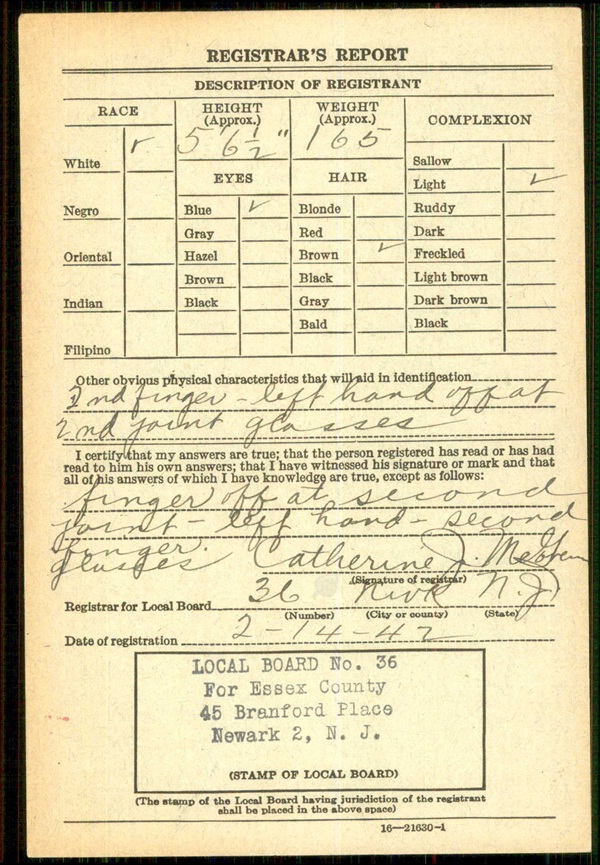 REGISTRAR'S REPORT
DESCRIPTION OF REGISTRANT
RACE
HEIGHT (Approx.)
WEIGHT (Approx.)
COMPLEXION
5' 6 1/2" 165
White ✓
Sallow
EYES
HAIR
Light ✓
Negro
Blue ✓
Blonde
Ruddy
Gray
Red
Dark
Oriental
Hazel
Brown ✓
Freckled
Brown
Black
Light brown
Indian
Black
Gray
Dark brown
Bald
Black
Filipino
Other obvious physical characteristics that will aid in identification
2nd finger - left hand off at
2nd joint glasses
I certify that my answers are true; that the person registered has read or has had
read to him his own answers; that I have witnessed his signature or mark and that
all of his answers of which I have knowledge are true, except as follows:
finger off at second
joint - left hand - second
finger.
glasses Catherine J.
(Signature of registrar)
Registrar for Local Board 36 Nwk N.J.
(Number) (City or county) (State)
Date of registration 2-14-42
LOCAL BOARD No. 36
For Essex County
45 Branford Place
Newark 2, N. J.
(STAMP OF LOCAL BOARD)
(The stamp of the Local Board having jurisdiction of the registrant
shall be placed in the above space)
16—21630-1